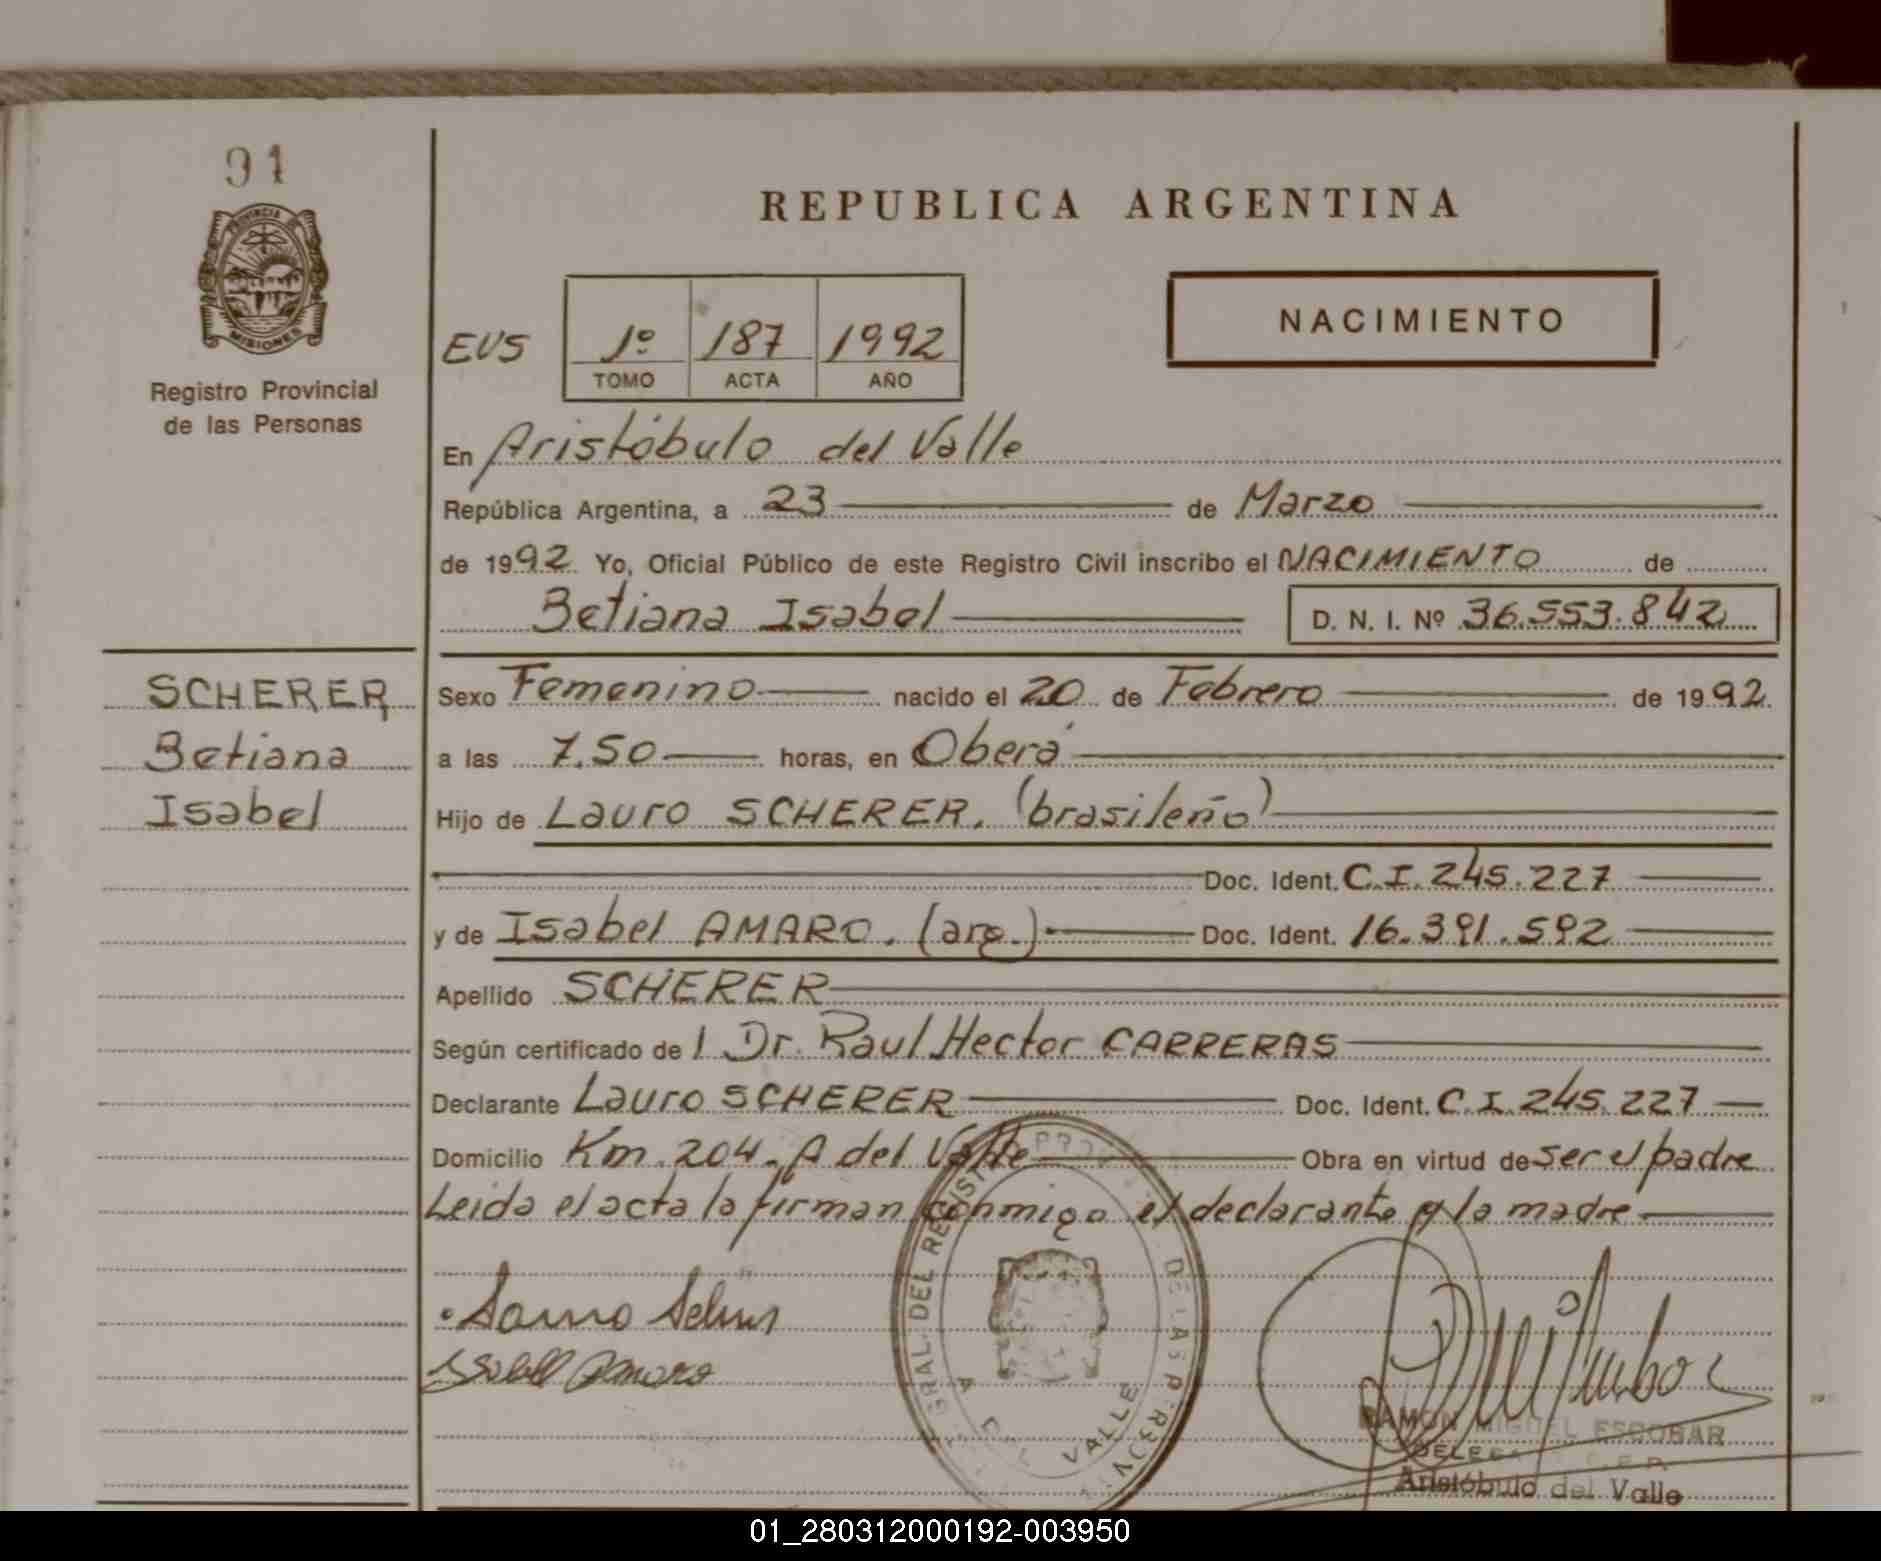 91
PROVINCIA
MISIONES
Registro Provincial
de las Personas
SCHERER
Betiana
Isabel
REPUBLICA ARGENTINA
NACIMIENTO
EVS 1º 187 1992
TOMO ACTA AÑO
En Aristóbulo del Valle
República Argentina, a 23 de Marzo
de 1992. Yo, Oficial Público de este Registro Civil inscribo el NACIMIENTO de
Betiana Isabel D. N. I. Nº 36.553.842
Sexo Femenino nacido el 20 de Febrero de 1992.
a las 7.50 horas, en Oberá
Hijo de Lauro SCHERER. (brasileño)
Doc. Ident. C.I. 245.227
y de Isabel AMARO. (arg.) Doc. Ident. 16.391.592
Apellido SCHERER
Según certificado de l Dr. Raul Hector CARRERAS
Declarante Lauro SCHERER Doc. Ident. C.I. 245.227
Domicilio Km. 204. A del Valle Obra en virtud de ser el padre
Leida el acta la firman conmigo el declarante y la madre
GRAL. DEL REGISTRO PROV. DE LAS PER
VALLE
Isabel Amaro
RAMON MIGUEL ESCOBAR
Aristóbulo del Valle
01_280312000192-003950